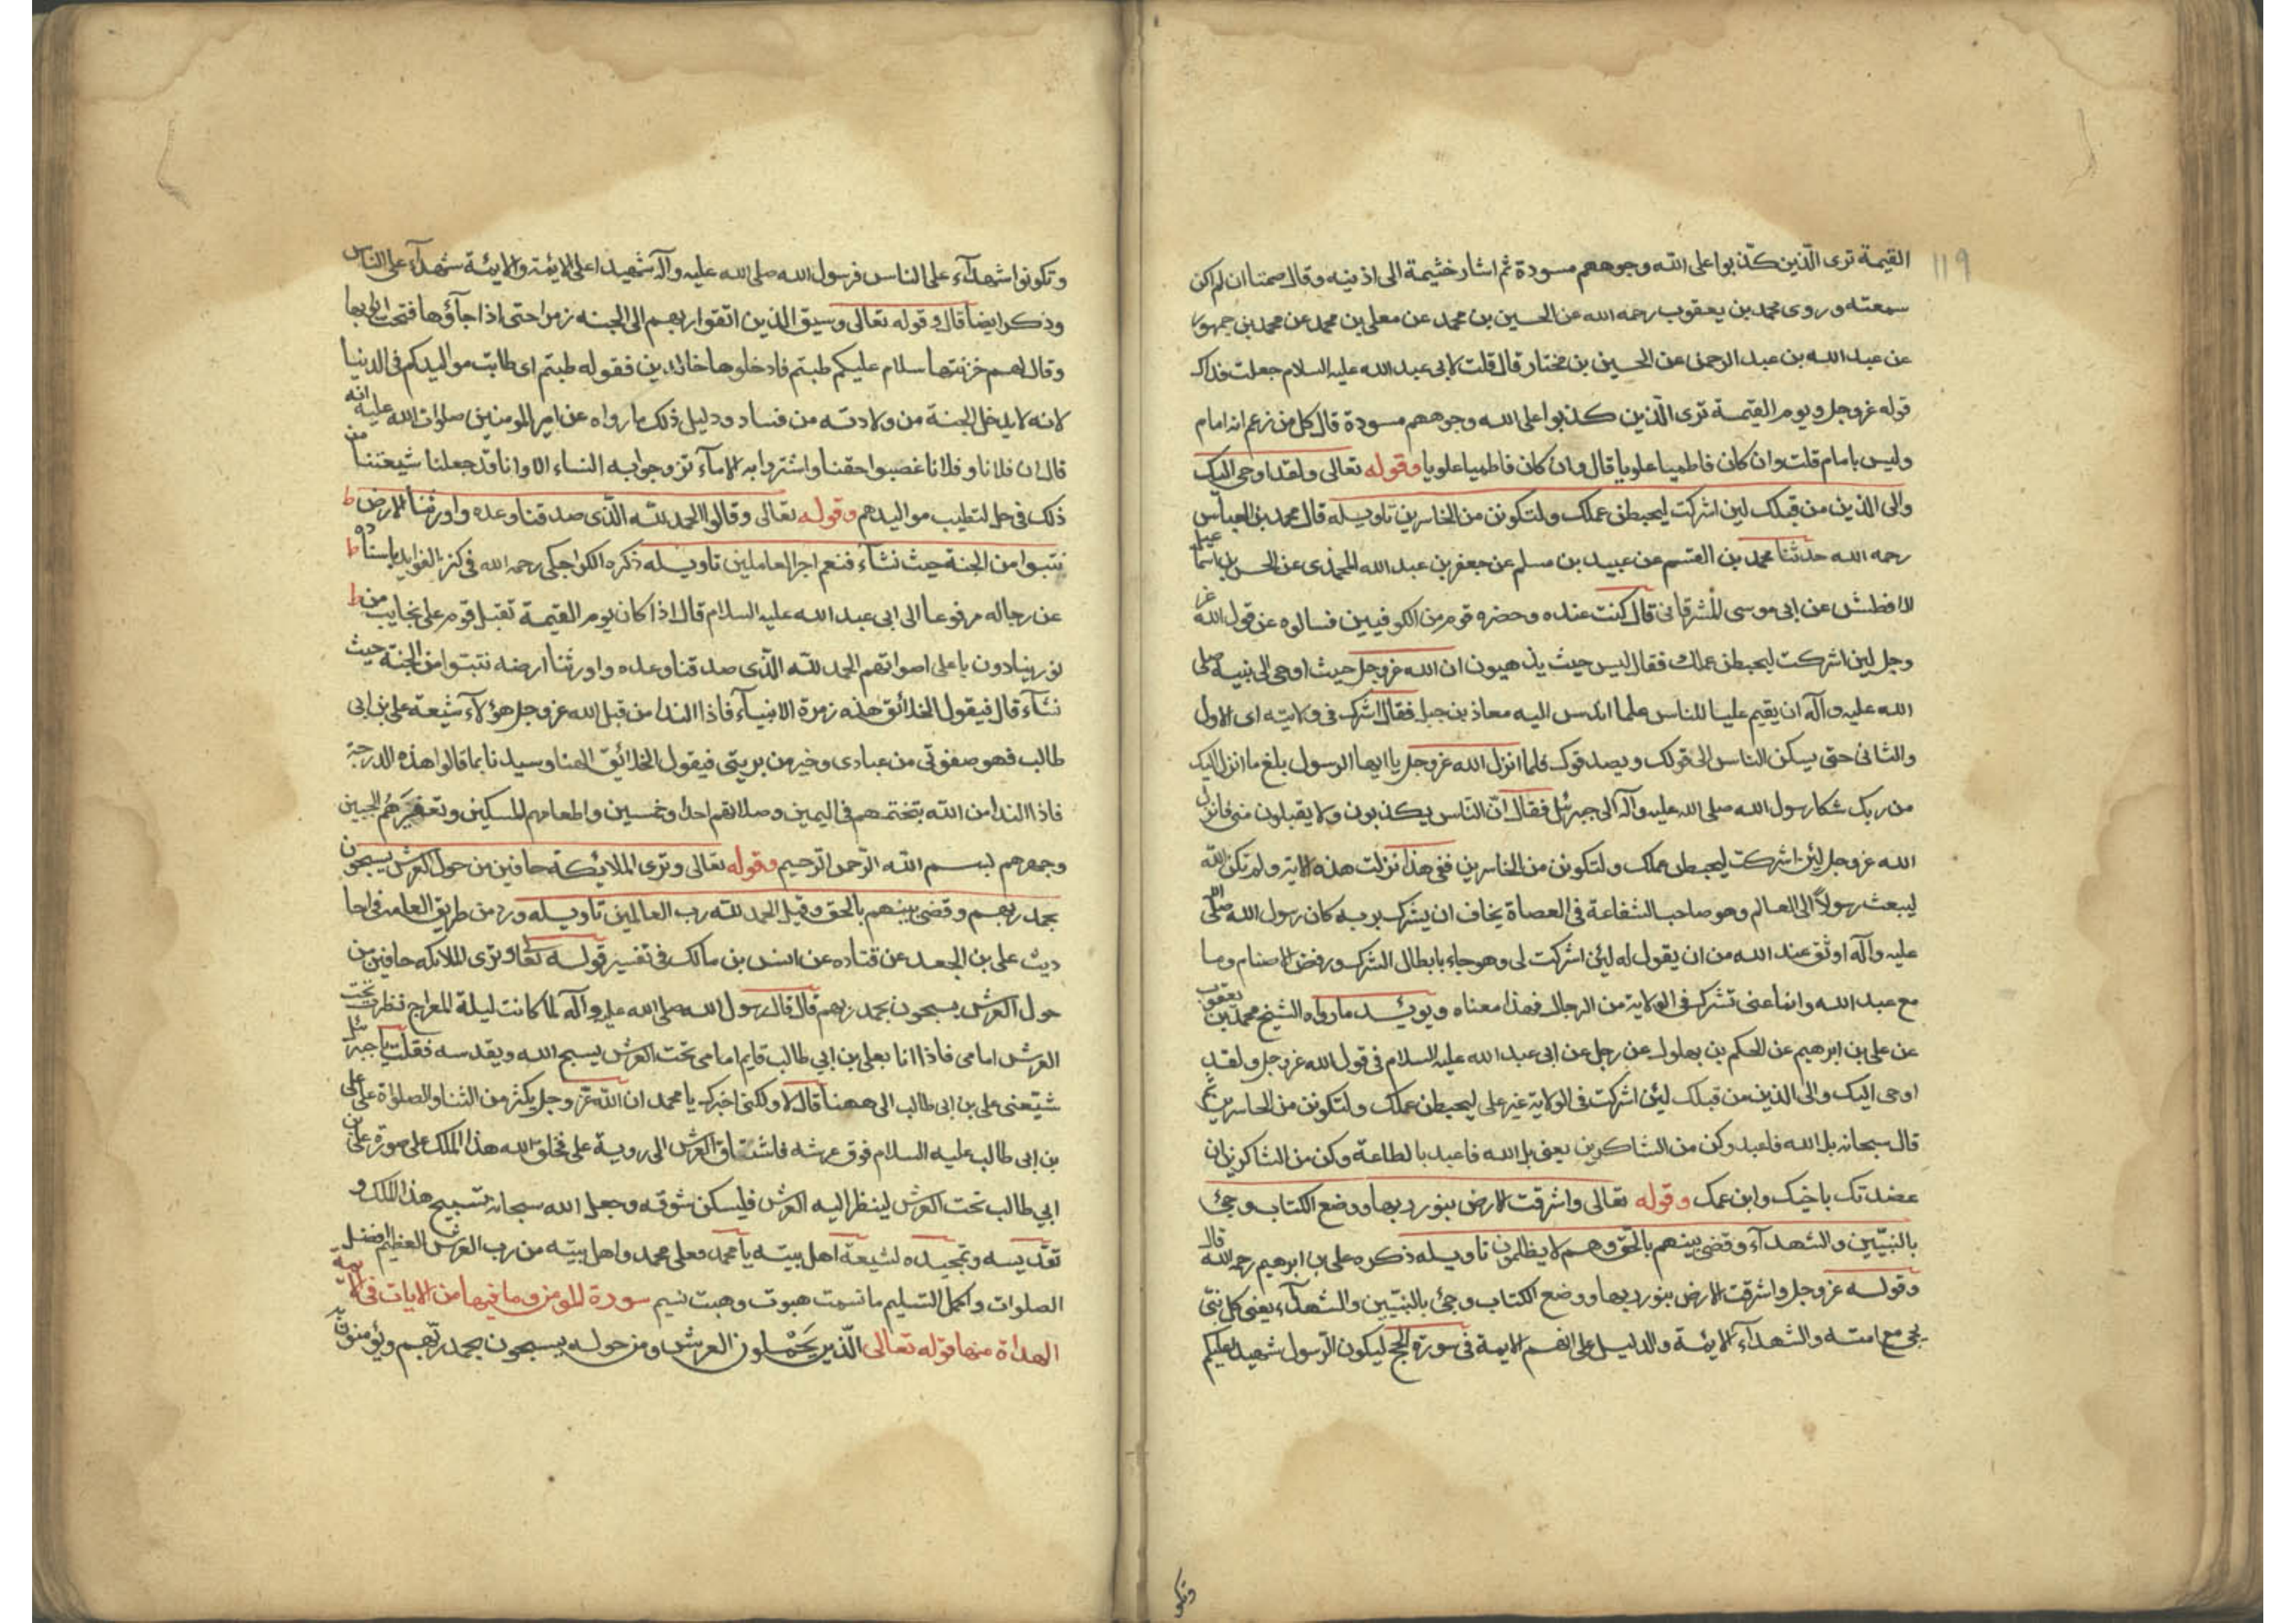 ١١٩
القيمة ترى الّذين كذّبوا على الله وجوههم مسودة ثم اشار خثيمة الى اذنيه وقال صمتا ان لم اكن
سمعته وروى محمد بن يعقوب رحمه الله عن الحسين بن محمد عن معلى بن محمد عن محمد بن جمهور
عن عبد الله بن عبد الرحمن عن الحسين بن مختار قال قلت لابى عبد الله عليه السلام جعلت فداك
قوله عز وجل ويوم القيمة ترى الّذين كذبوا على الله وجوههم مسودة قال كل من زعم انه امام
وليس بامام قلت وان كان فاطميا علويا قال وان كان فاطميا علويا وقوله تعالى ولقد اوحى اليك
والى الذين من قبلك لين اشركت ليحبطن عملك ولتكونن من الخاسرين تاويله قال محمد بن العباس
رحمه الله حدثنا محمد بن القسم عن عبيد بن مسلم عن جعفر بن عبد الله المحمدى عن الحسن بن اسمعيل
الافطس عن ابى موسى المشرقانى قال كنت عنده وحضره قوم من الكوفيين فسالوه عن قول الله عز
وجل لين اشركت ليحبطن عملك فقال ليس حيث يذهبون ان الله عز وجل حيث اوحى الى نبيه صلى
الله عليه وآله ان يقيم عليا للناس علما اندس اليه معاذ بن جبل فقال اشرك فى ولايته اى الاول
والثانى حتى يسكن الناس الى قولك ويصدقوك فلما انزل الله عز وجل يا ايها الرسول بلغ ما انزل اليك
من ربك شكا رسول الله صلى الله عليه وآله الى جبرئيل فقال انّ النّاس يكذبون ولا يقبلون منى فانزل
الله عز وجل لئن اشركت ليحبطن عملك ولتكونن من الخاسرين ففى هذا نزلت هذه الاية ولم يكن الله
ليبعث رسولاً الى العالم وهو صاحب الشفاعة فى العصاة يخاف ان يشرك بربه كان رسول الله صلى الله
عليه وآله اوثق عند الله من ان يقول له لئن اشركت لى وهو جاء بابطال الشرك ورفض الاصنام وما
مع عبد الله وانما عنى تشرك فى الولاية من الرجال فهذا معناه ويؤيد ما رواه الشيخ محمد بن يعقوب
عن على بن ابرهيم عن الحكم بن بهلول عن رجل عن ابى عبد الله عليه السلام فى قول الله عز وجل ولقد
اوحى اليك والى الذين من قبلك لئن اشركت فى الولاية غير على ليحبطن عملك ولتكونن من الخاسرين ثم
قال سبحانه بل الله فاعبد وكن من الشاكرين يعنى بل الله فاعبد بالطاعة وكن من الشاكرين ان
عضدتك باخيك وابن عمك وقوله تعالى واشرقت الارض بنور ربها ووضع الكتاب وجئ
بالنبيّين والشهدآء وقضى بينهم بالحقّ وهم لا يظلمون تاويله ذكره على بن ابرهيم رحمه الله قال
وقوله عز وجل واشرقت الارض بنور ربها ووضع الكتاب وجئ بالنبيّين والشهدآء يعنى كل نبىّ
يجئ مع امته والشهدآء الايئة والدليل على انهم الايمة فى سورة الحج ليكون الرّسول شهيدا عليكم
وتكو
وتكونوا شهدآء على الناس فرسول الله صلى الله عليه وآله شهيدا على الايئة والايئة شهدآء على الناس
وذكر ايضا قال وقوله تعالى وسيق الذين اتقوا ربهم الى الجنه زمرا حتى اذا جآؤها فتحت ابوابها
وقال لهم خزنتها سلام عليكم طبتم فادخلوها خالدين فقوله طبتم اى طابت مواليدكم فى الدنيا
لانه لا يدخل الجنة من ولادته من فساد ودليل ذلك ما رواه عن امير المومنين صلوات الله عليه انه
قال ان فلانا وفلانا غصبوا حقنا واشتروا به الامآء تزوجوا به النساء الا وانا قد جعلنا شيعتنا من
ذلك فى حل لتطيب مواليدهم وقوله تعالى وقالوا الحمد لله الّذى صدقنا وعده واورثنا الارض
نتبوا من الجنة حيث نشآء فنعم اجر العاملين تاويله ذكره الكراجكى رحمه الله فى كنز الفوايد باسناده
عن رجاله مرفوعا الى ابى عبد الله عليه السلام قال اذا كان يوم القيمة تقبل قوم على نجايب من
نور ينادون باعلى اصواتهم الحمد للّه الّذى صدقنا وعده واورثنا ارضه نتبوا من الجنة حيث
نشآء قال فيقول الخلائق هذه زمرة الانبيآء فاذا الندا من قبل الله عز وجل هؤلآء شيعة على بن ابى
طالب فهو صفوتى من عبادى وخير من بريتى فيقول الخلائق الهنا وسيدنا بما قالوا هذه الدرجة
فاذا الندا من الله بتختمهم فى اليمين وصلاتهم احدا وخمسين واطعامهم المسكين وتعفيرهم الجبين
وجهرهم ببسم الله الرّحمن الرّحيم وقوله تعالى وترى الملايكة حافين من حول العرش يسبحون
بحمد ربهم وقضى بينهم بالحق وقيل الحمد لله رب العالمين تاويله ورد من طريق العامه فى احا
ديث على بن الجعد عن قتاده عن انس بن مالك فى تفسير قوله تعالى وترى الملائكه حافين من
حول العرش يسبحون بحمد ربهم قال قال رسول الله صلى الله عليه وآله لما كانت ليلة المعراج نظرت تحت
العرش امامى فاذا انا بعلى بن ابي طالب قايم امامى تحت العرش يسبح الله ويقدسه فقلت يا جبرئيل
سبقنى على بن ابى طالب الى ههنا قال لا ولكنى اخبرك يا محمد ان الله عز وجل يكثر من الثنا والصلواة على على
بن ابى طالب عليه السلام فوق عرشه فاشتاق العرش الى روية على فخلق الله هذا الملك على صورة على بن
ابي طالب تحت العرش لينظر اليه العرش فليسكن شوقه وجعل الله سبحانه تسبيح هذا الملك و
تقديسه وتمجيده لشيعة اهل بيته يا محمد فعلى محمد واهل بيته من رب العرش العظيم افضل
الصلوات واكمل التسليم ما نسمت هبوت وهبت نسيم سورة المومن وما فيها من الايات فى الايمة
الهداة منها قوله تعالى الّذين يَحْمِلون العرش ومن حوله يسبحون بحمد ربّهم ويؤمنون